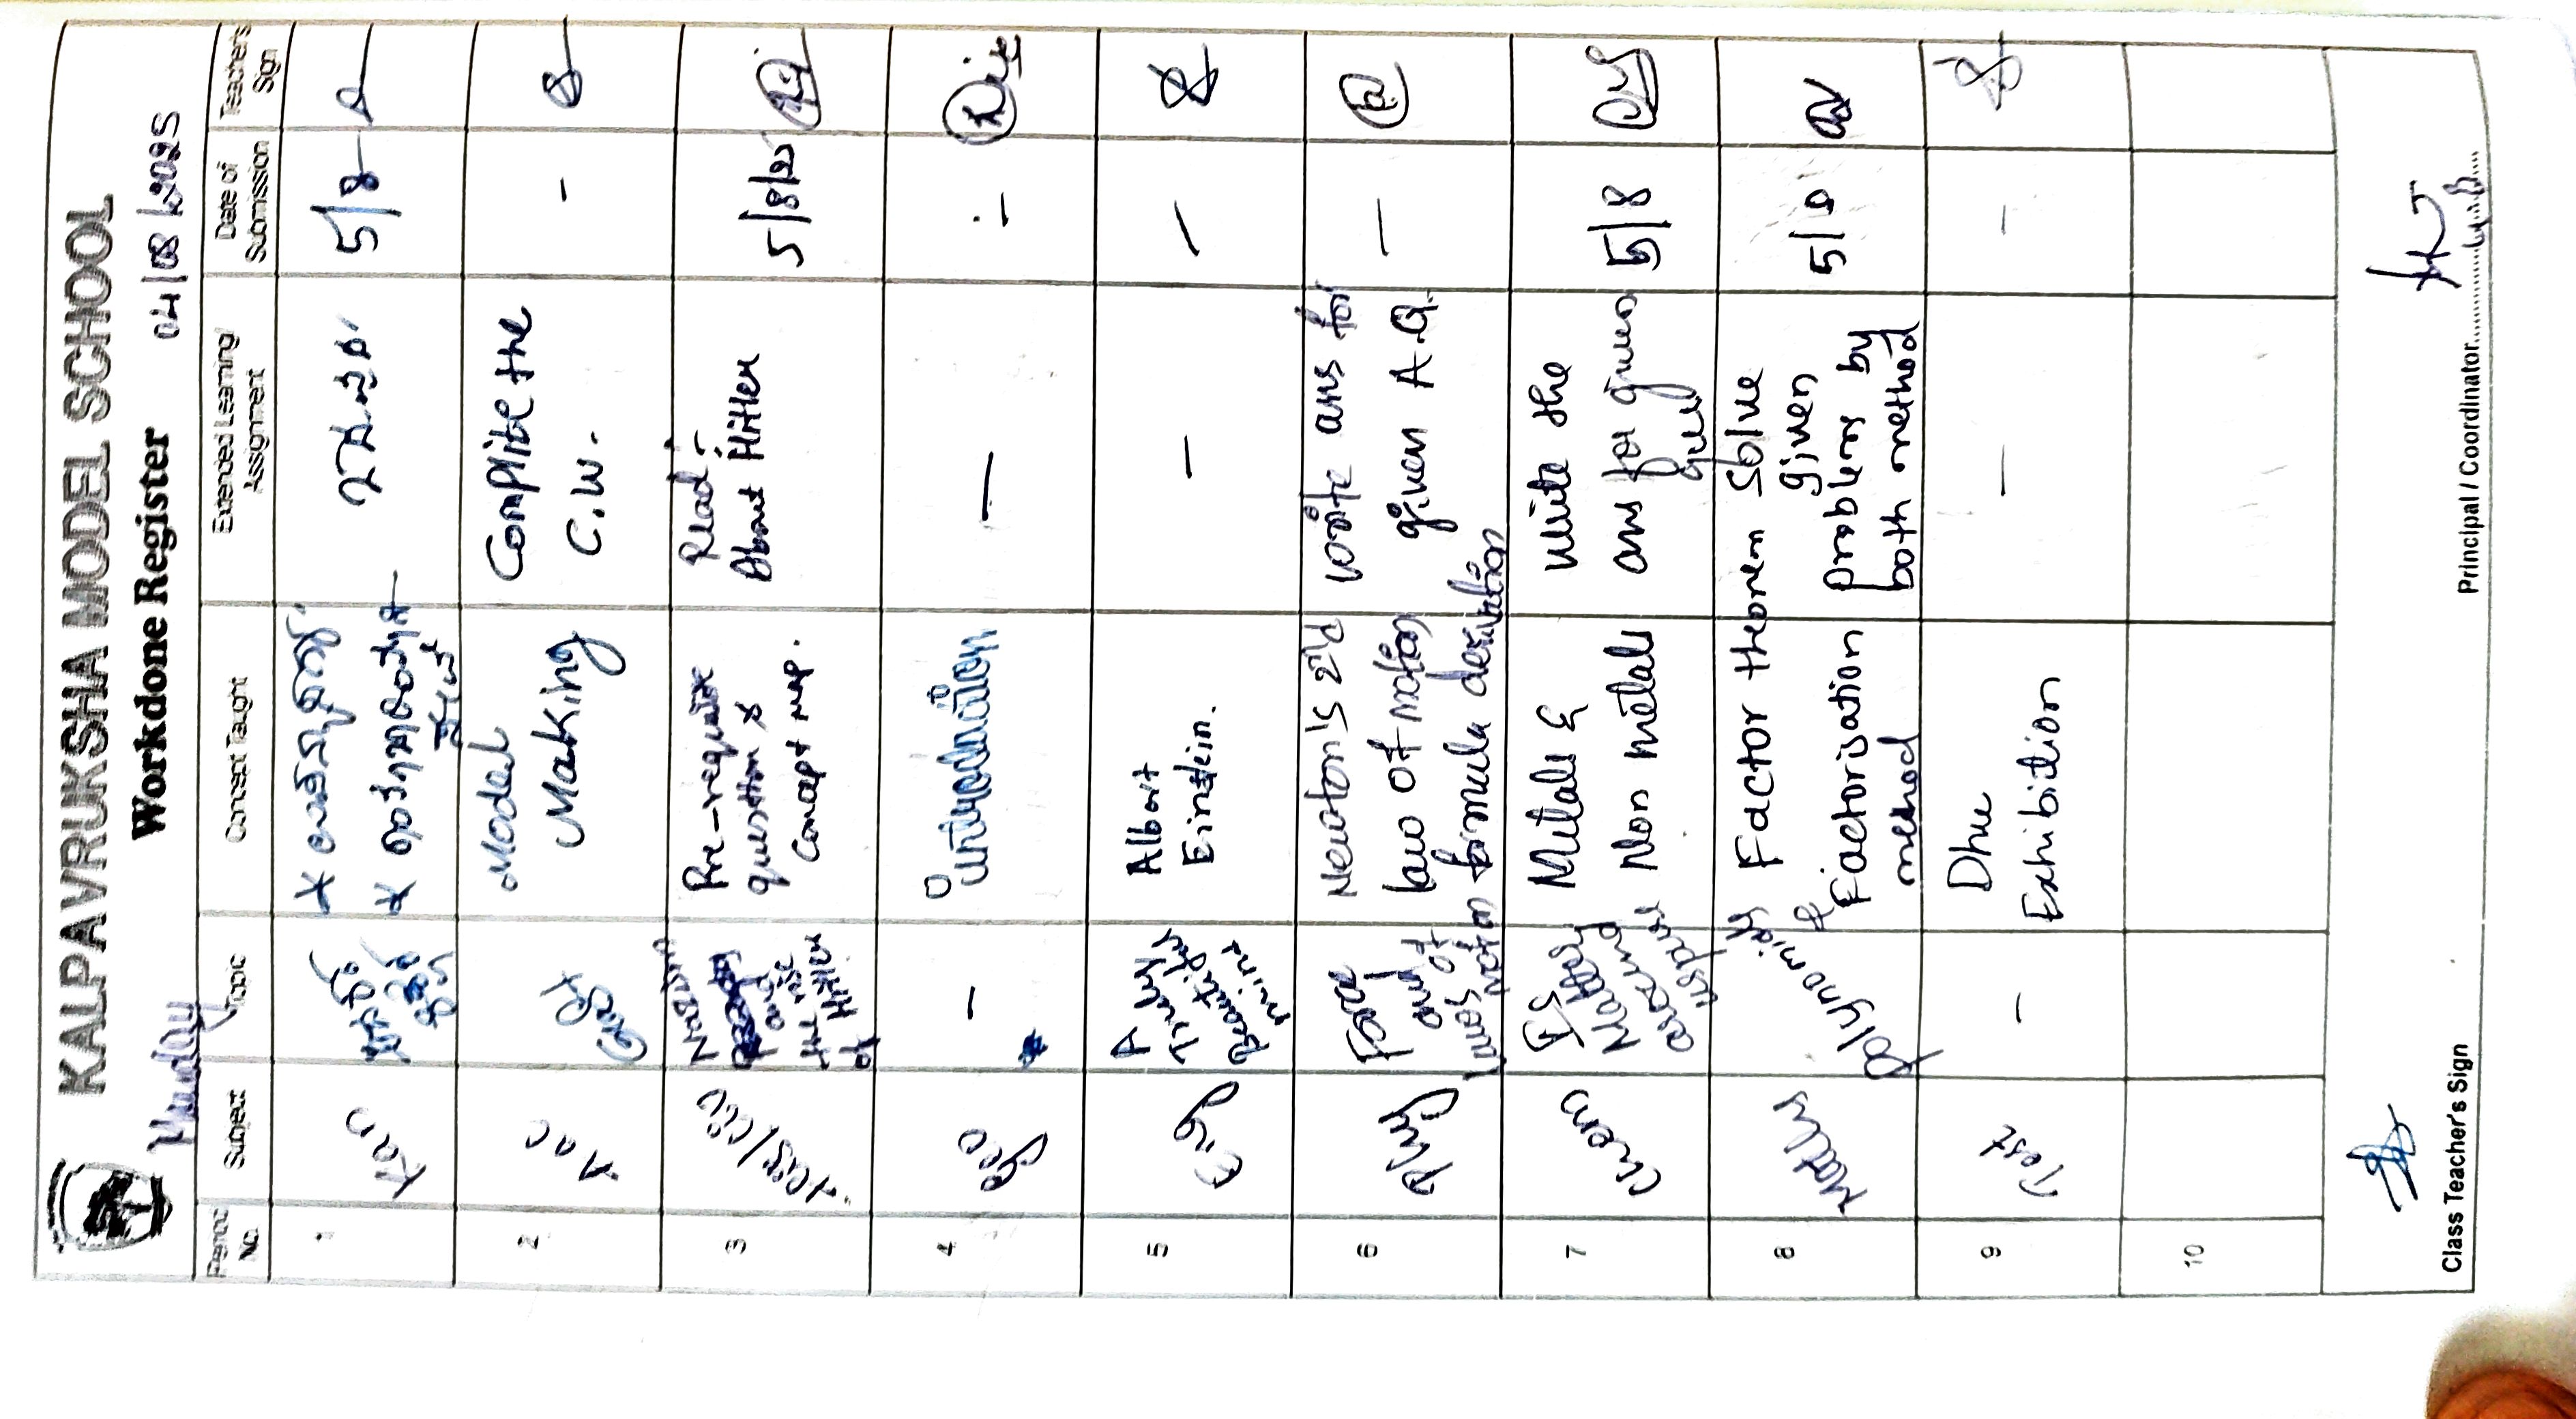 KALPAVRUKSHA MODEL SCHOOL
Workdone Register 04/08/2025
Period No. Subject Topic Concept Taught Extended Learning/ Assignment Date of Submission Teacher's Sign
1 Kan 5/8
2 Model Making Complite the C.W. -
3 Pre-requisite question & Concept map. Read - About Hitler 5/8/25
and the rise of Hitler
4 Geo - Introduction - -
5 Eng A Truly Beautiful mind Albert Einstein. - -
6 Phy Force and laws of motion Newton's 2nd law of motion formula derivation write ans for given A.Q. -
7 Chem Is Matter around us pure Metals & Non metals write the ans for given que 5/8
8 Maths Polynomials Factor theorem & Factorisation method Solve given problems by both method 5/8
9 - Exhibition - -
10
Class Teacher's Sign Principal / Coordinator